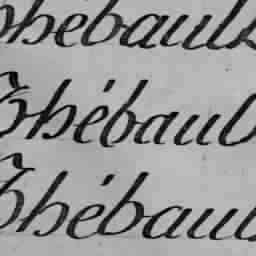 Thébault
Thébaul
Thébaul